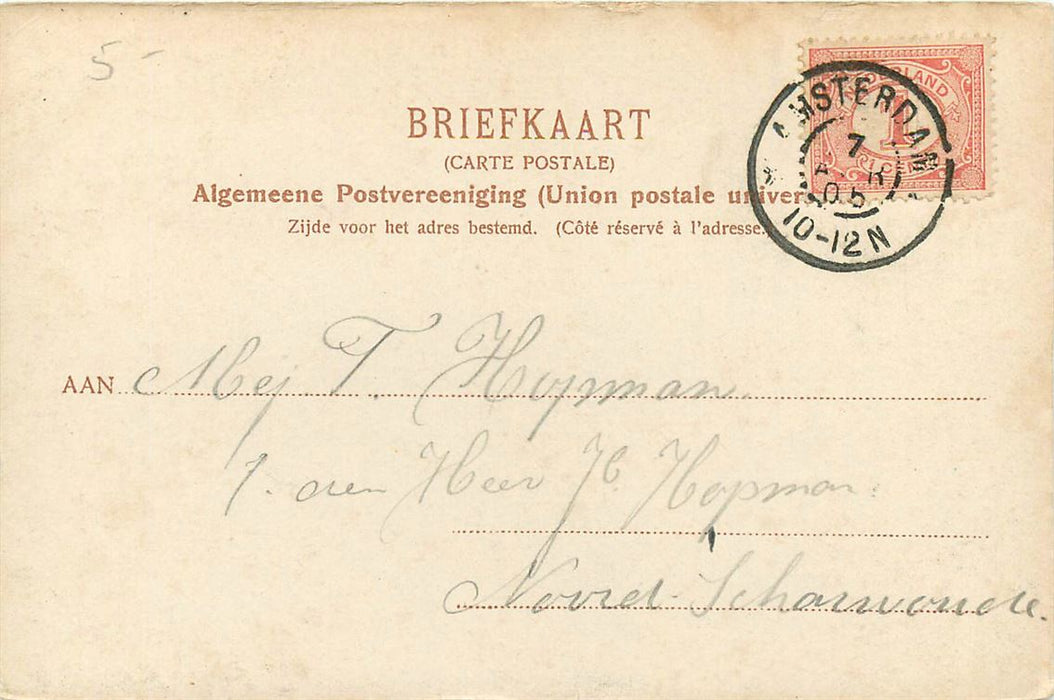 5-
BRIEFKAART
(CARTE POSTALE)
Algemeene Postvereeniging (Union postale univer
Zijde voor het adres bestemd. (Côté réservé à l'adresse.
NEDERLAND
1
AMSTERDAM
7
A R
05
10-12N
AAN Mej T. Hopman.
den Heer Hopman.
Noord-Scharwoude.